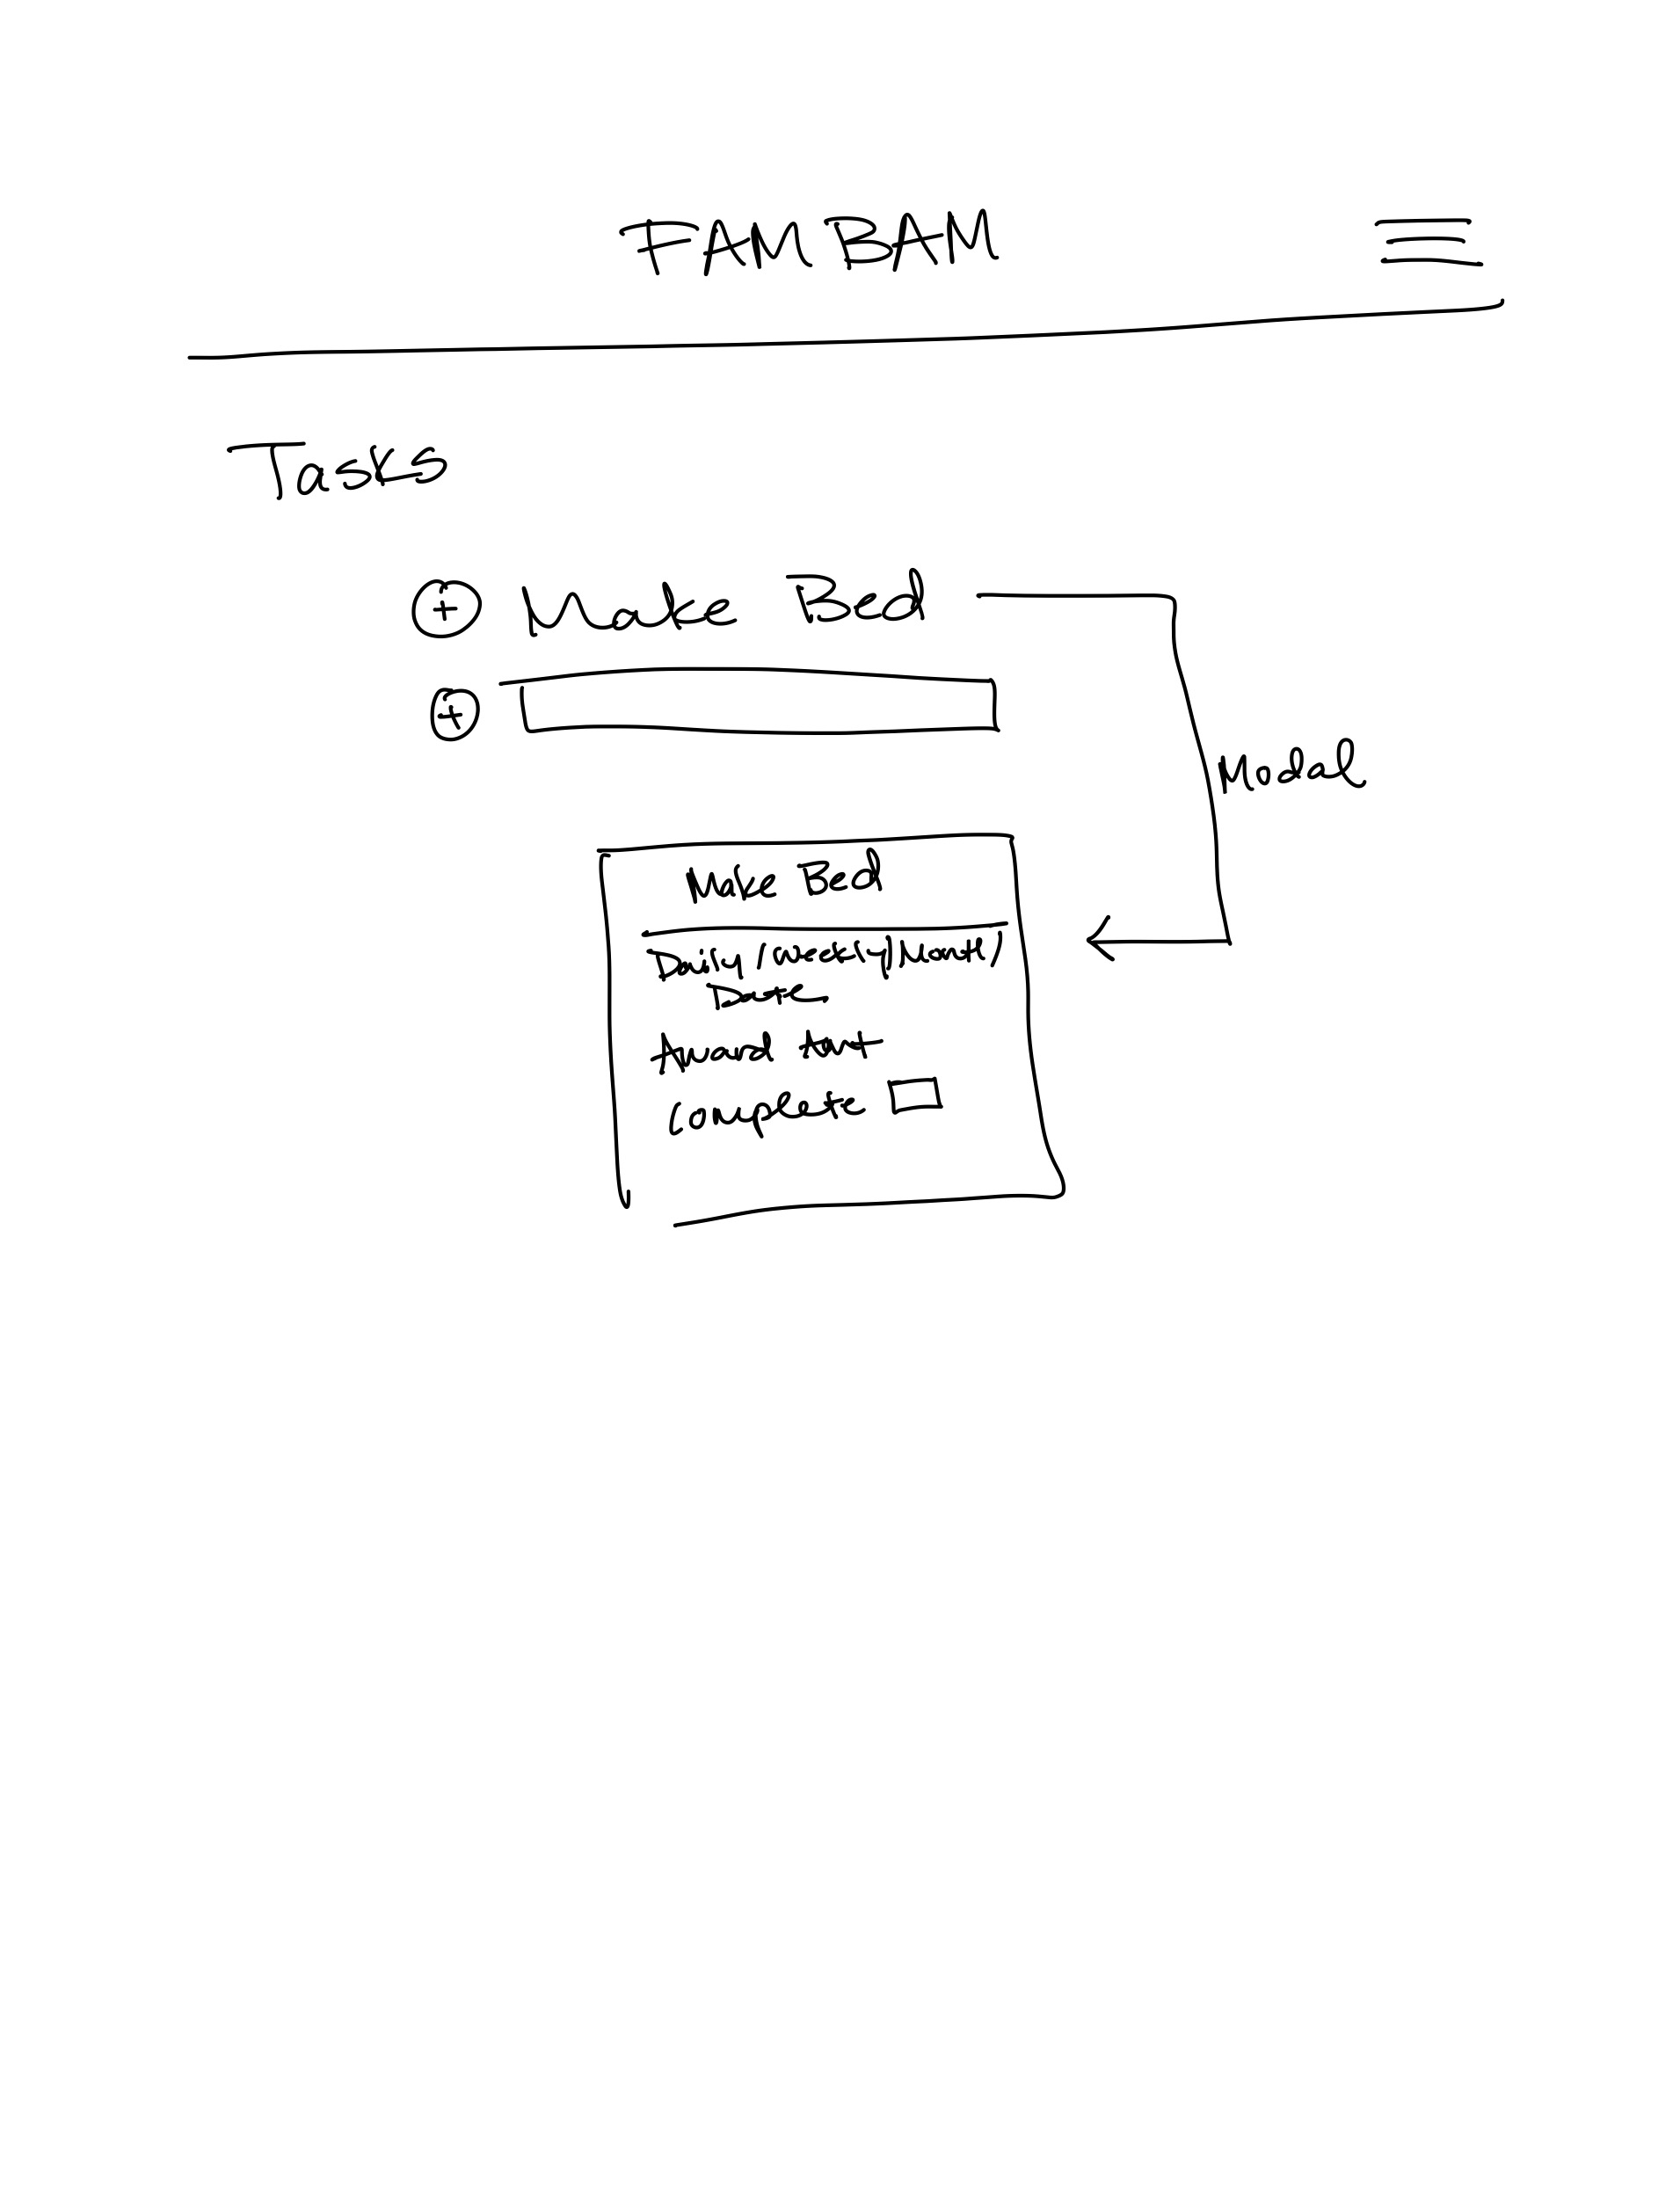 FAMBAM
Tasks
+ Make Bed
+
Model
Make Bed
Daily/weekly/Monthly
Date
Award Amt
Complete